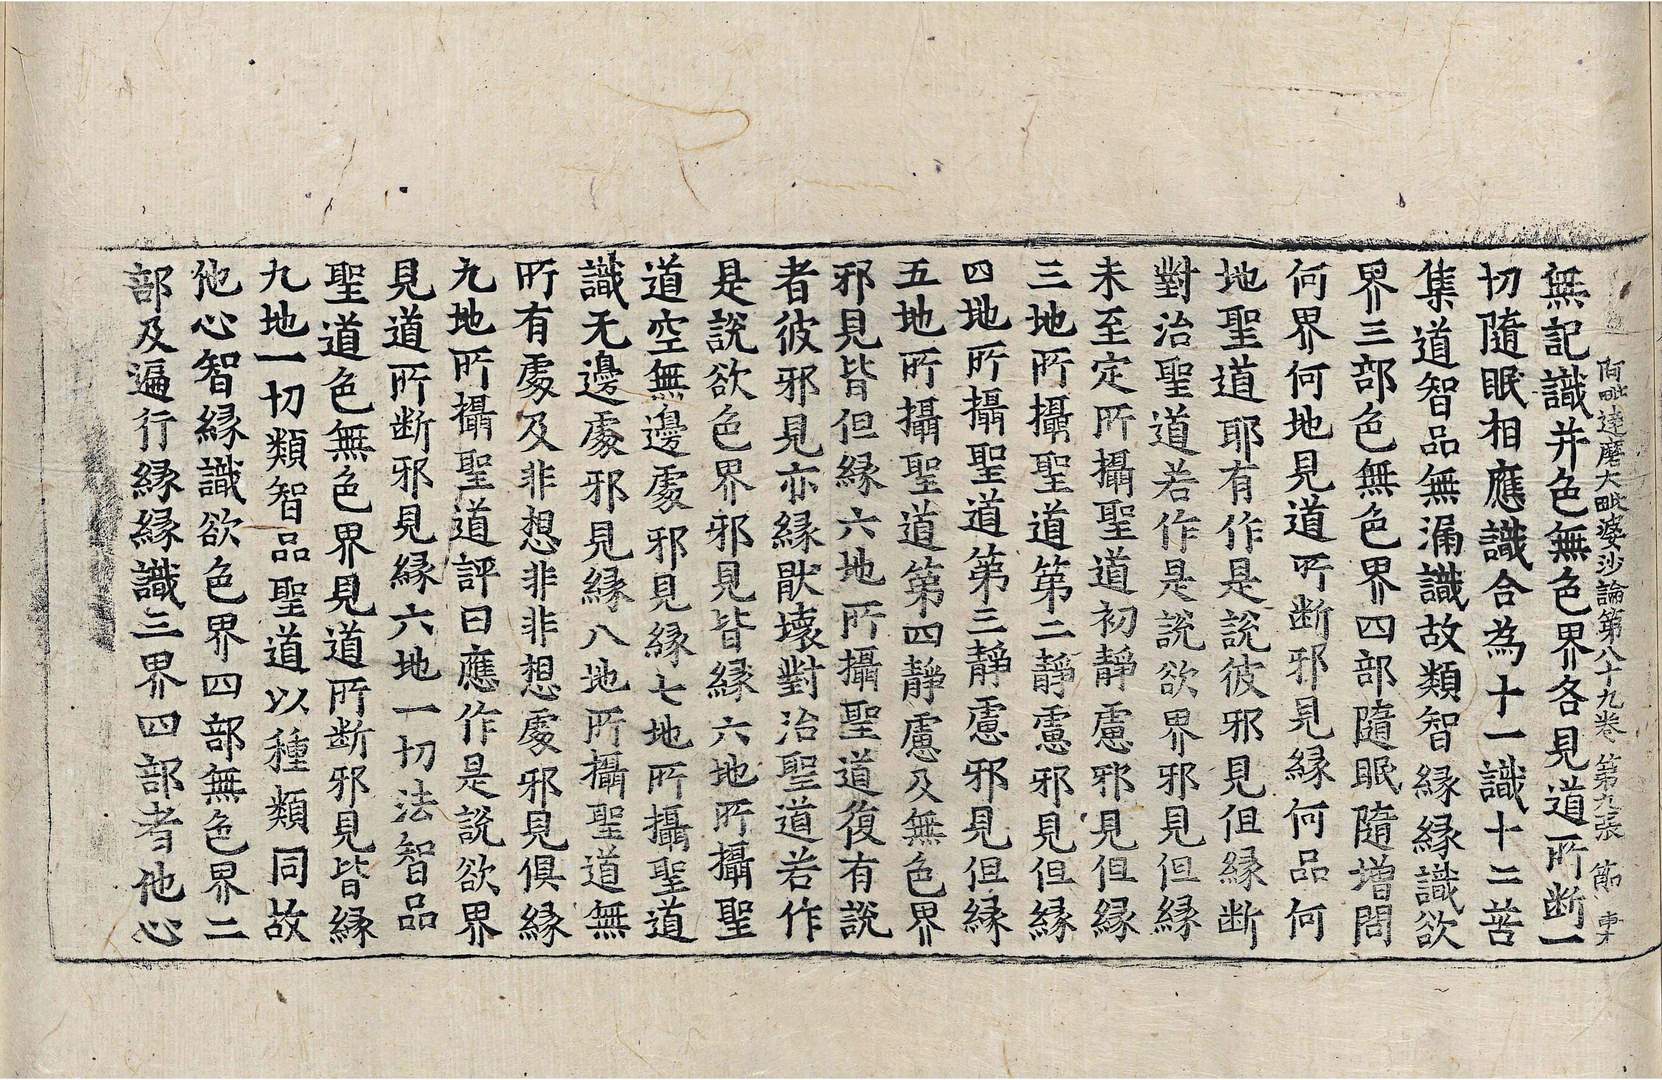 阿毗達磨大毗婆沙論第八十九卷 第九張 節
無記識并色無色界各見道所断一
切隨眠相應識合為十一識十二苦
集道智品無漏識故類智縁縁識欲
界三部色無色界四部隨眠隨增問
何界何地見道所断邪見縁何品何
地聖道耶有作是說彼邪見但縁断
對治聖道若作是說欲界邪見但縁
未至定所攝聖道初靜慮邪見但縁
三地所攝聖道第二靜慮邪見但縁
四地所攝聖道第三靜慮邪見但縁
五地所攝聖道第四靜慮及無色界
邪見皆但縁六地所攝聖道復有說
者彼邪見亦縁猒壞對治聖道若作
是說欲色界邪見皆縁六地所攝聖
道空無邊處邪見縁七地所攝聖道
識无邊處邪見縁八地所攝聖道無
所有處及非想非非想處邪見俱縁
九地所攝聖道評曰應作是說欲界
見道所断邪見縁六地一切法智品
聖道色無色界見道所断邪見皆縁
九地一切類智品聖道以種類同故
他心智縁識欲色界四部無色界二
部及遍行縁縁識三界四部者他心